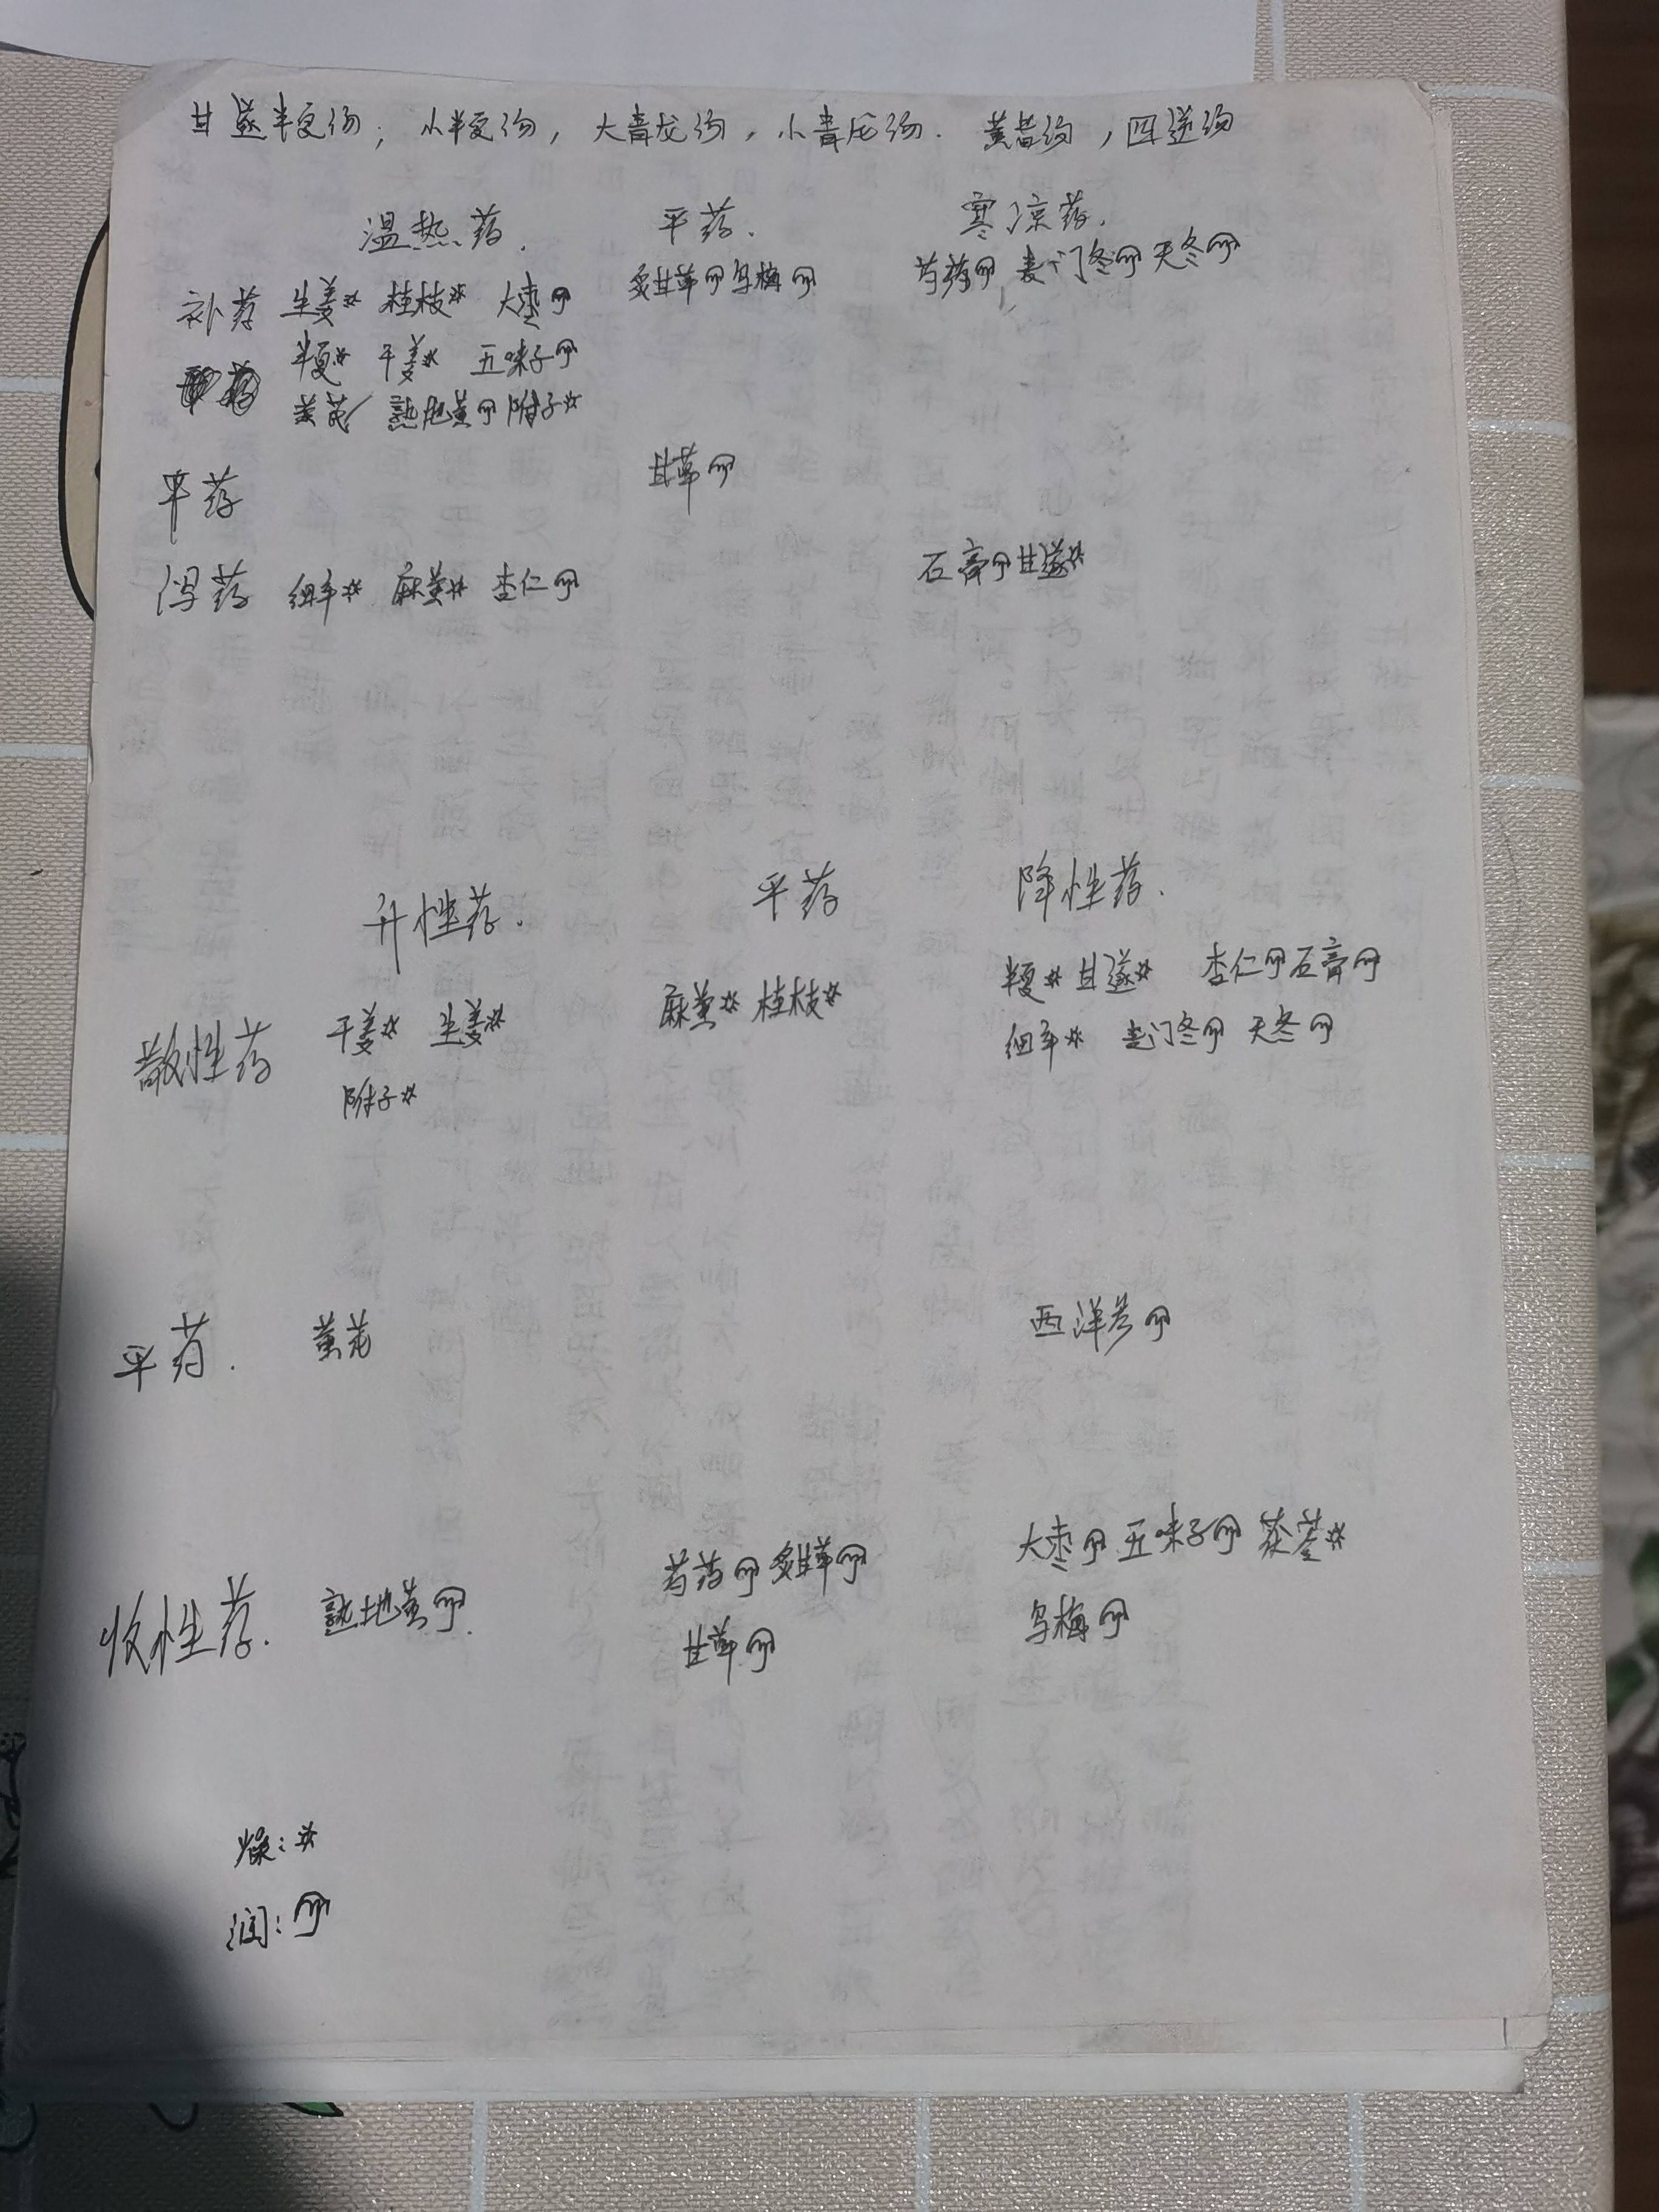 甘遂半夏汤；小半夏汤，大青龙汤，小青龙汤．黄耆汤，四逆汤
温热药． 平药． 寒凉药．
补药 生姜※ 桂枝※ 大枣 炙甘草 乌梅 芍药 麦门冬 天冬
半夏※ 干姜※ 五味子
黄芪 熟地黄 附子※
平药 甘草
泻药 细辛※ 麻黄※ 杏仁 石膏 甘遂※
升性药． 平药 降性药．
散性药 干姜※ 生姜※ 麻黄※ 桂枝※ 半夏※ 甘遂※ 杏仁 石膏
附子※ 细辛※ 麦门冬 天冬
平药． 黄芪 西洋参
收性药． 熟地黄 芍药 炙甘草 大枣 五味子 茯苓※
甘草 乌梅
燥：※
润：